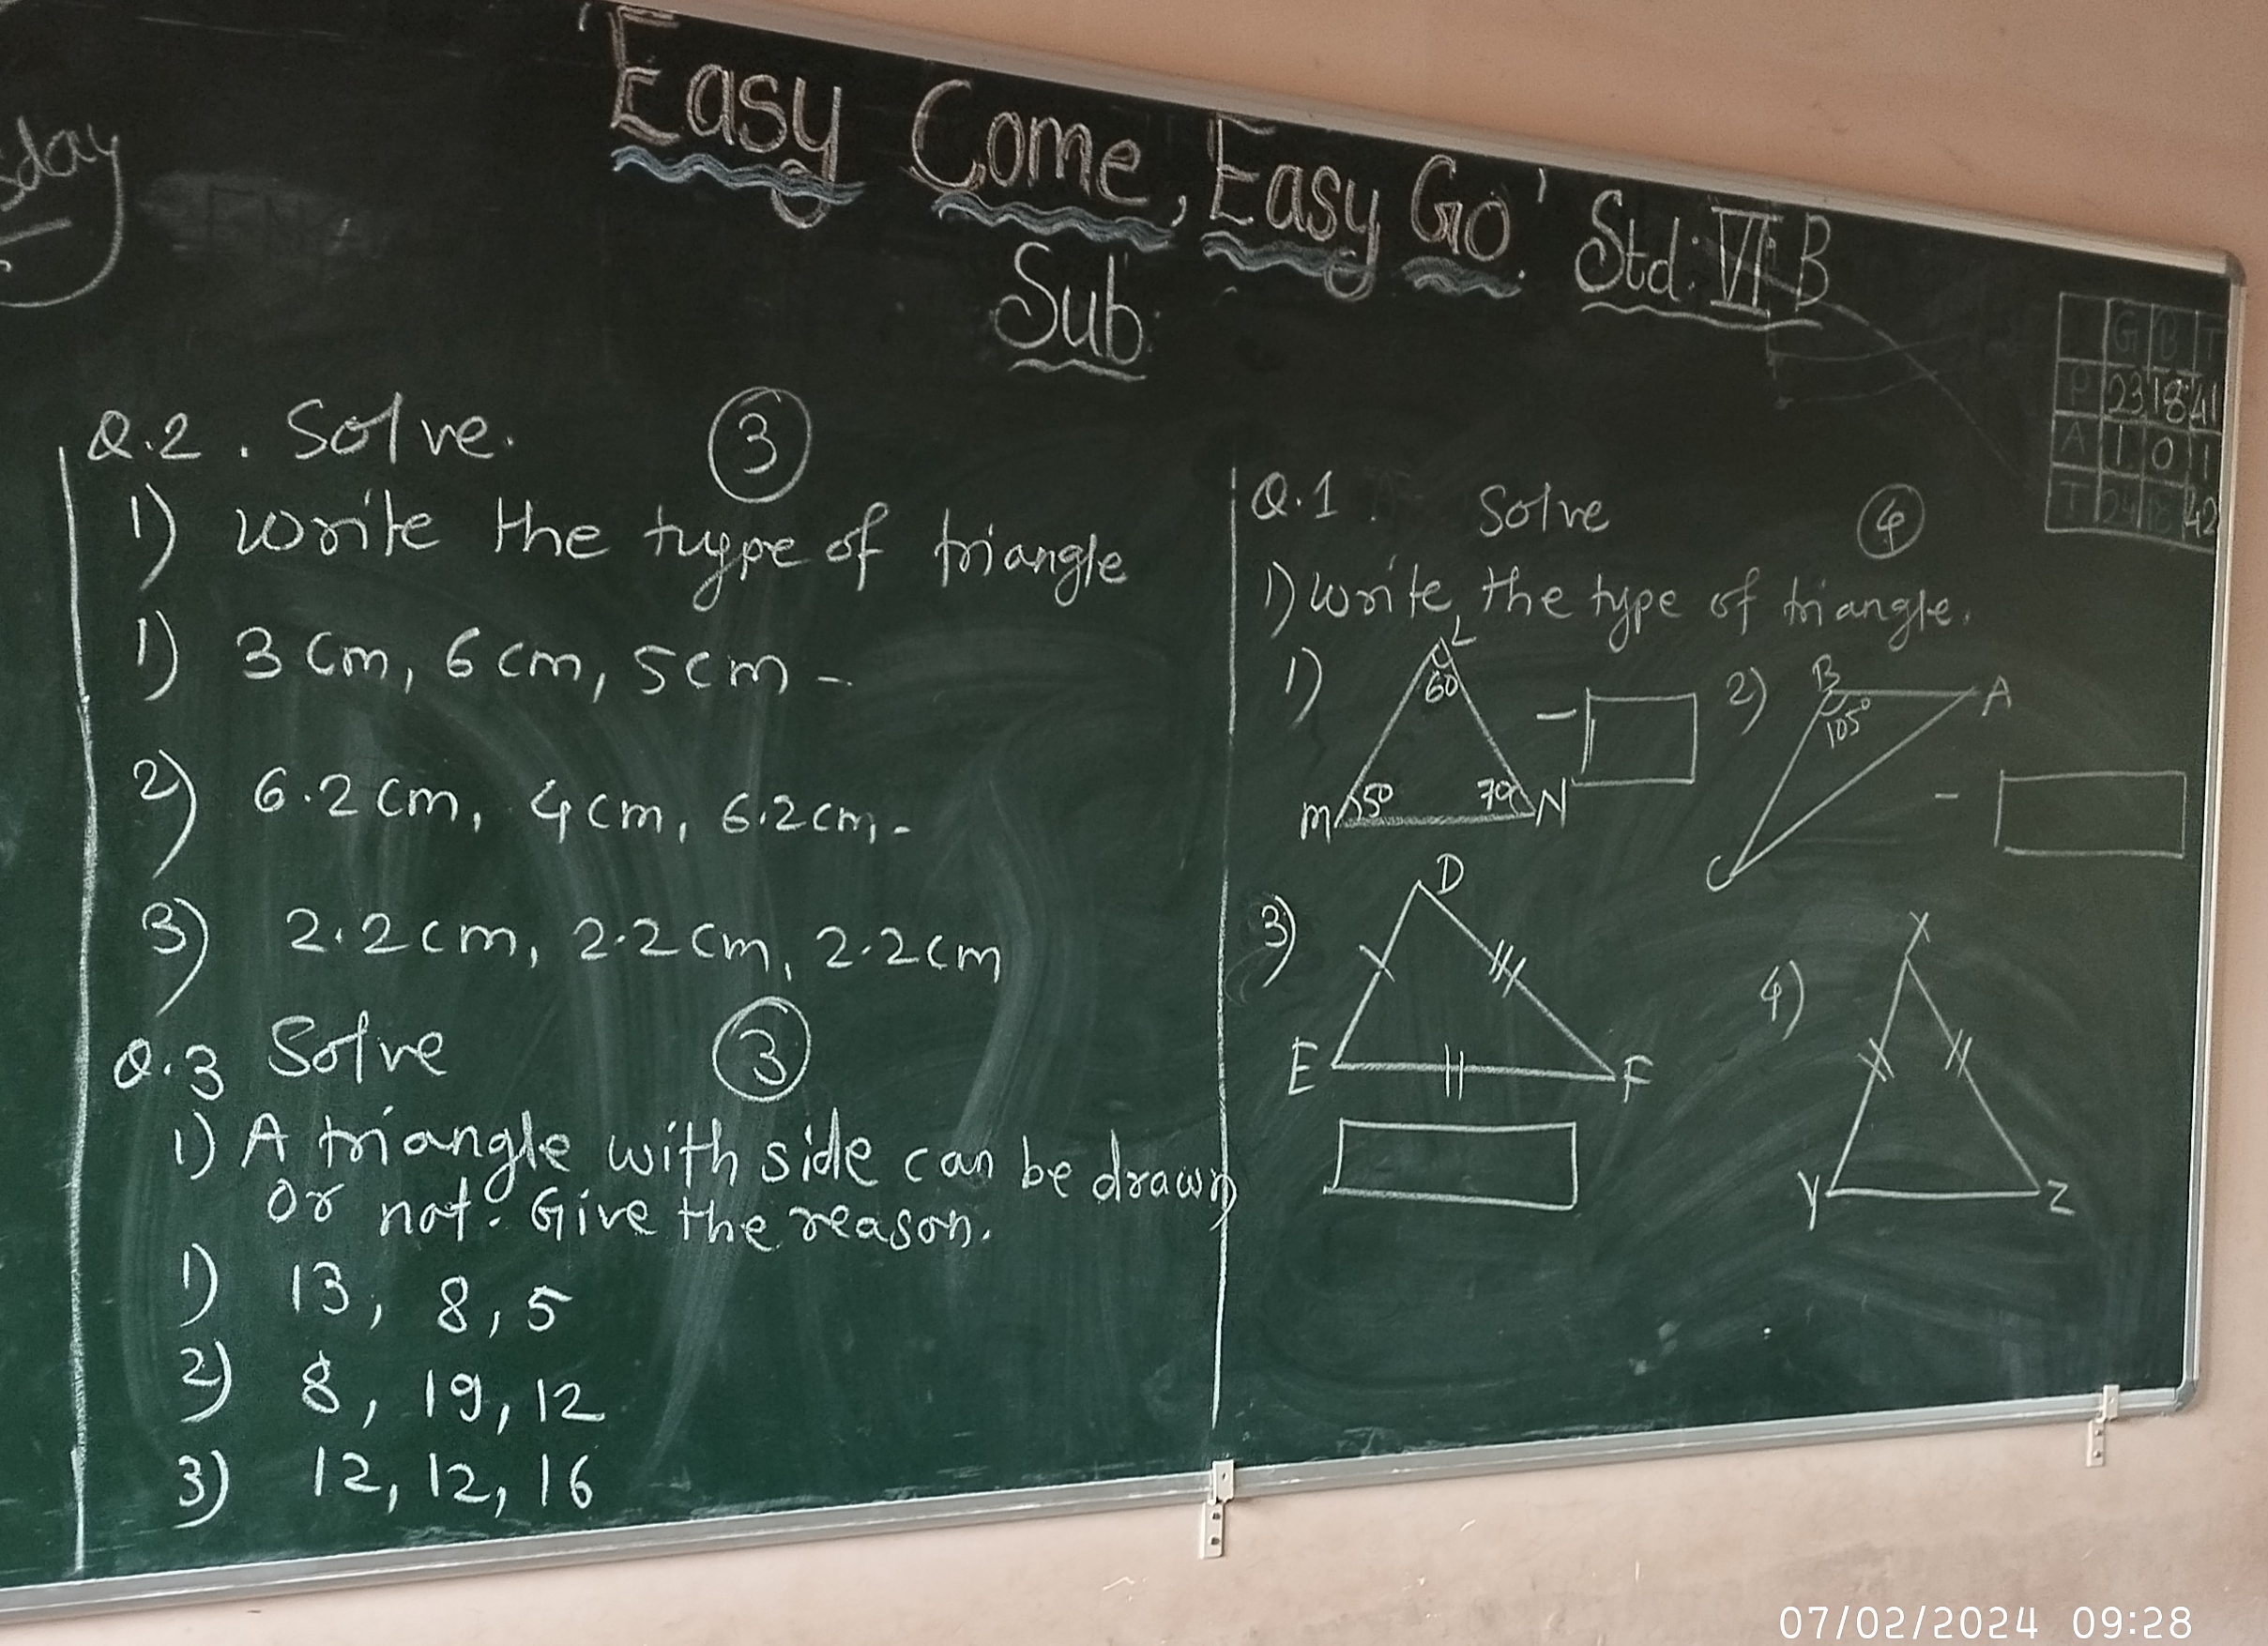 'Easy Come, Easy Go.' Std: VI B
sday
Sub:
G B T
P 23 18 41
A 1 0 1
T 24 18 42
Q.2. Solve. 3
1) Write the type of triangle
1) 3 cm, 6 cm, 5 cm -
2) 6.2 cm, 4 cm, 6.2 cm -
3) 2.2 cm, 2.2 cm, 2.2 cm
Q.3 Solve 3
1) A triangle with side can be drawn
or not. Give the reason.
1) 13, 8, 5
2) 8, 19, 12
3) 12, 12, 16
Q.1. Solve 4
1) Write the type of triangle.
1) L 60 M 50 70 N -
2) B A 105° C -
3) D E F
4) X Y Z
07/02/2024 09:28